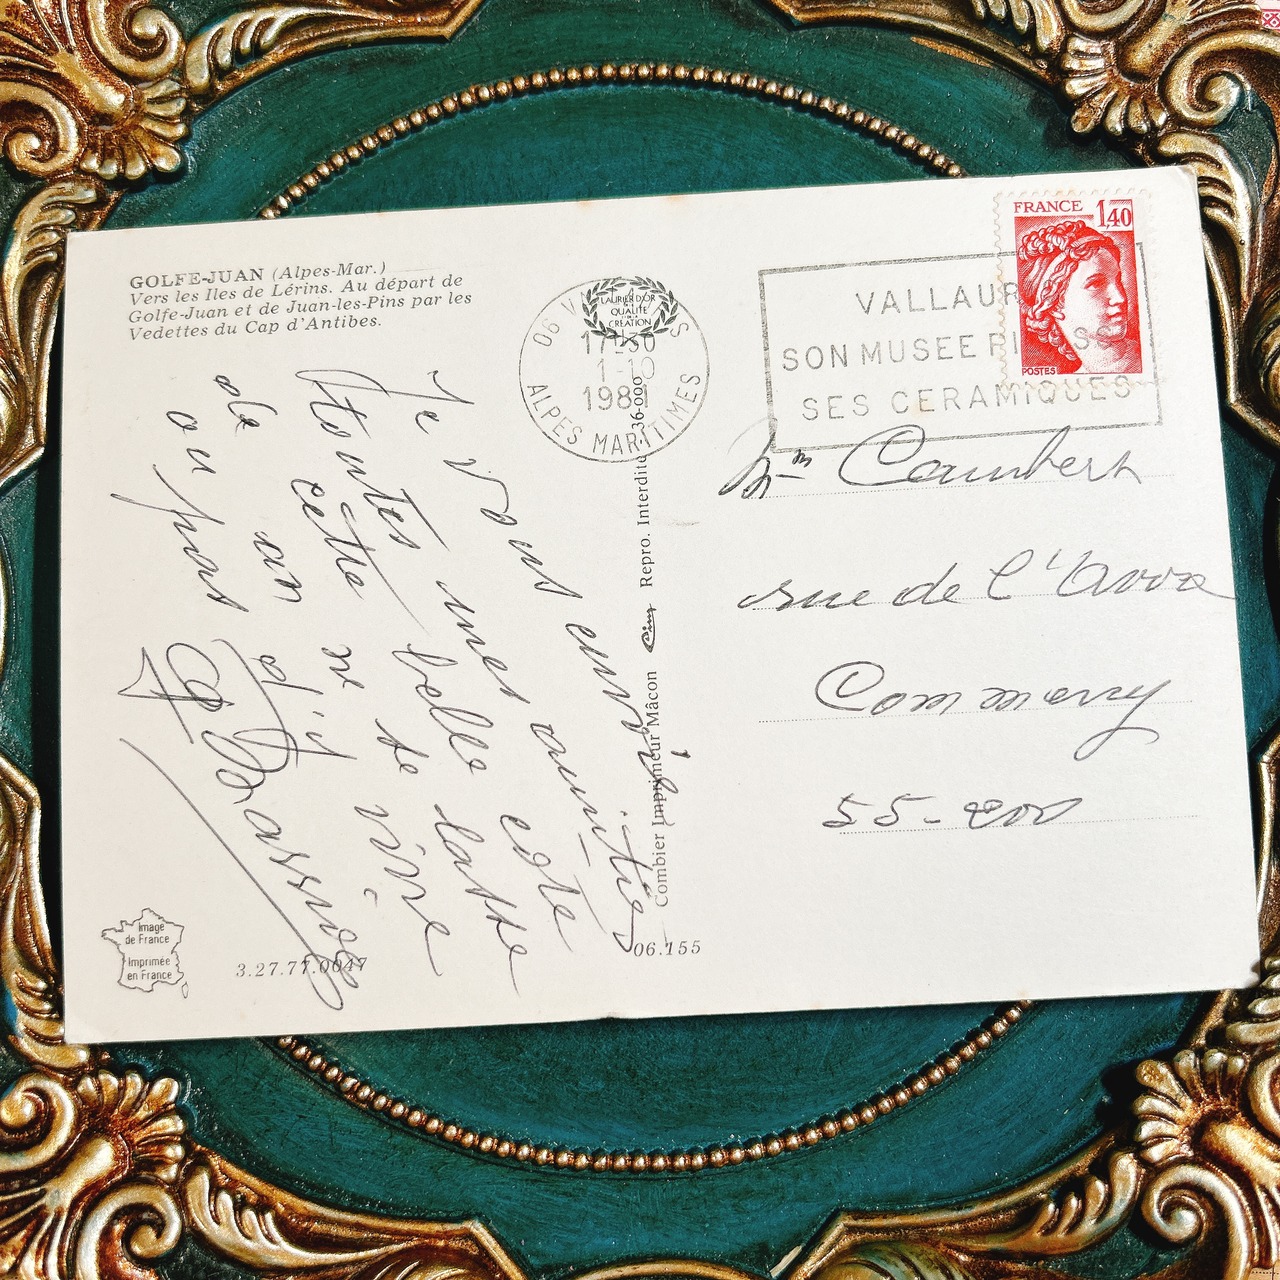 GOLFE-JUAN (Alpes-Mar.)
Vers les Iles de Lérins. Au départ de
Golfe-Juan et de Juan-les-Pins par les
Vedettes du Cap d'Antibes.
Je vous envoie
toutes mes amitiés
cette belle côte
de
an ne se
ou pas d'y vivre
Image
de France
Imprimée
en France
3.27.77.0047
06.155
Combier Imprimeur Mâcon Cim Repro. Interdite 36-000
LAURIER D'OR
QUALITÉ
DE LA
CRÉATION
06 V S
17-30
1-10
1981
ALPES MARITIMES
VALLAUR
SON MUSEE PI SS
SES CERAMIQUES
FRANCE 1,40
POSTES
rue de l'
Commercy
55-200